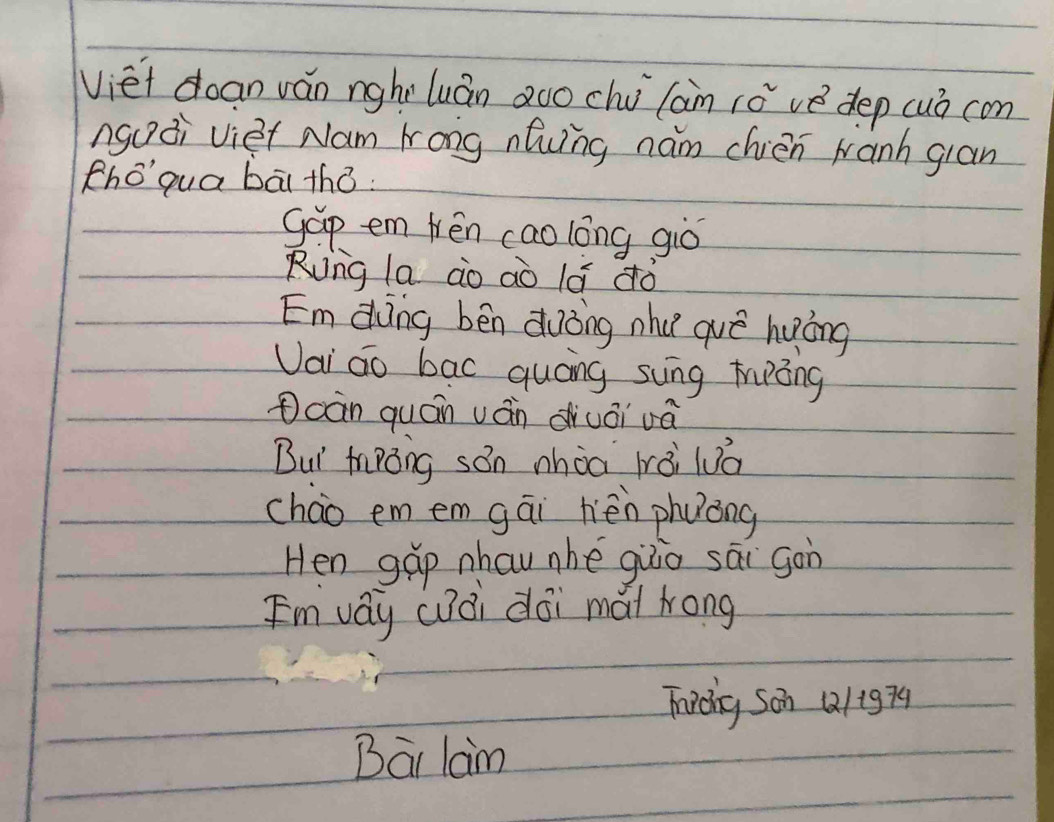 Viết đoạn văn nghị luận 200 chữ làm rõ vẻ đẹp của con
người Việt Nam trong những năm chiến tranh gian
khổ qua bài thơ:
Gặp em trên cao lộng gió
Rừng lạ ào ào lá đỏ
Em đứng bên đường như quê hương
Vai áo bạc quàng súng trường
Đoàn quân vẫn đi vội vã
Bụi trường sơn nhòa trời lửa
Chào em em gái tiền phương
Hẹn gặp nhau nhé giữa sài gòn
Em vẫy cười đôi mắt trong
Trường Sơn 12/1974
Bài làm